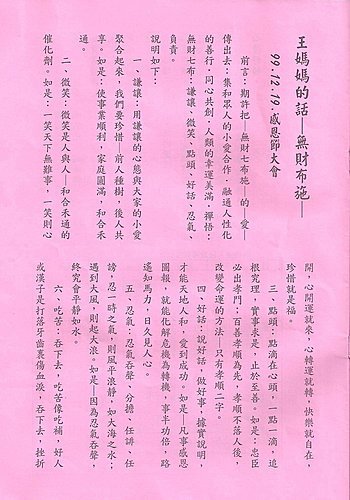 王媽媽的話—無財布施—
99.12.19.感恩節大會
前言：期許把—無財七布施—的—愛—
傳出去：集和眾人的小愛合作，融通人性化
的善行，同心共創，人類的幸運美滿，禪悟：
無財七布：謙讓、微笑、點頭、好話、忍氣、
負責。
說明如下：
一、謙讓：用謙讓的心態與大家的小愛
聚合起來，我們要珍惜—前人種樹，後人共
享。如是：使事業順利，家庭圓滿，和合禾
通。
二、微笑：微笑是人與人—和合禾通的
催化劑。如是：一笑天下無難事，一笑則心
開，心開運就來，心轉運就轉，快樂就自在，
珍惜就是福。
三、點頭：點滴在心頭，一點一滴，追
根究理，實事求是，止於至善。如是：忠臣
必出孝門；百善孝順為先，孝順不落人後，
改變命運的方法—只有孝順二字。
四、好話：說好話，做好事，據實說明，
才能天地人和，愛到成功。如是—凡事感恩
圖報，就能化解危機為轉機，事半功倍，路
遙知馬力，日久見人心。
五、忍氣：忍氣吞聲、分擔、任誹、任
謗，忍一時之氣，則風平浪靜，如大海之水；
遇到大風，則起大浪。如是—因為忍氣吞聲，
終究會平靜如水。
六、吃苦：吞下去，吃苦像吃補，好人
或漢子是打落牙齒裏傷血淚，吞下去，挫折